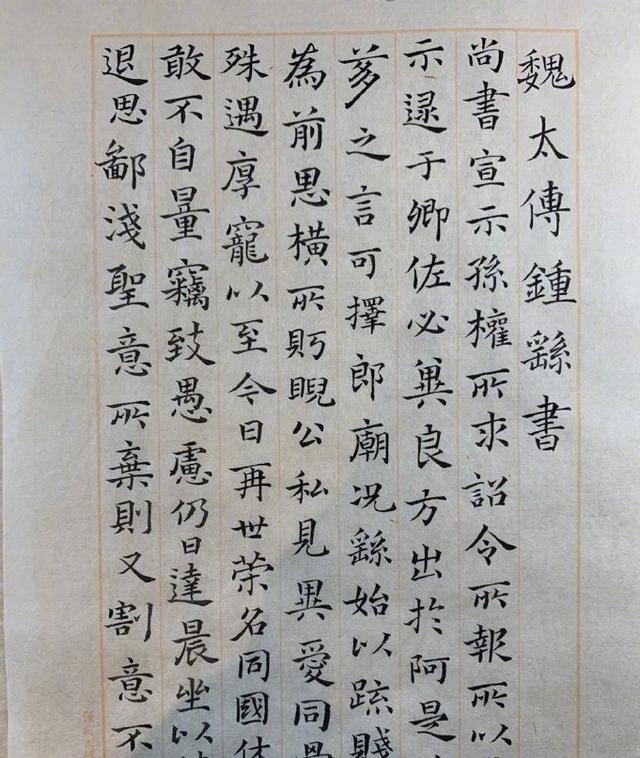 魏太傅鍾繇書
尚書宣示孫權所求詔令所報所以
示逯于卿佐必異良方出於阿是
芻之言可擇郎廟況繇始以疏賤
為前恩橫所眄睨公私見異愛同骨
殊遇厚寵以至今日再世榮名同國休
敢不自量竊致愚慮仍日達晨坐以待
退思鄙淺聖意所棄則又割意不